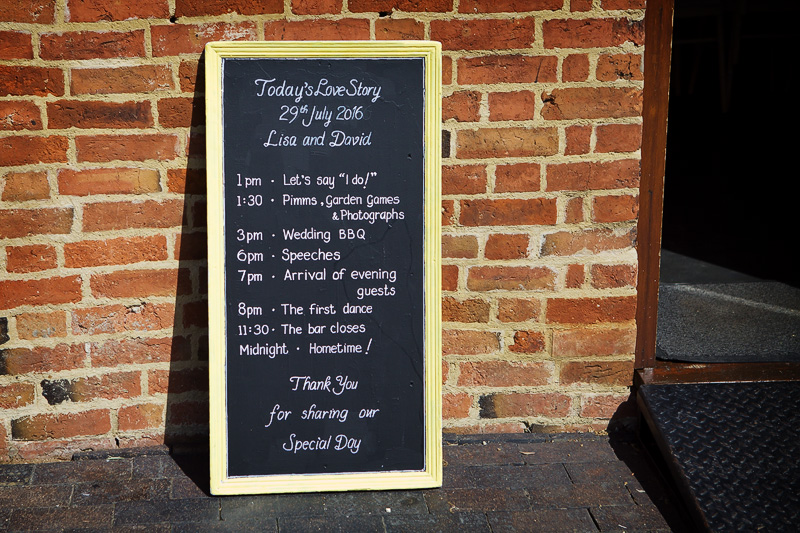 Today's Love Story
29th July 2016
Lisa and David
1pm · Let's say "I do!"
1:30 · Pimms, Garden Games
& Photographs
3pm · Wedding BBQ
6pm · Speeches
7pm · Arrival of evening
guests
8pm · The first dance
11:30 · The bar closes
Midnight · Hometime!
Thank You
for sharing our
Special Day